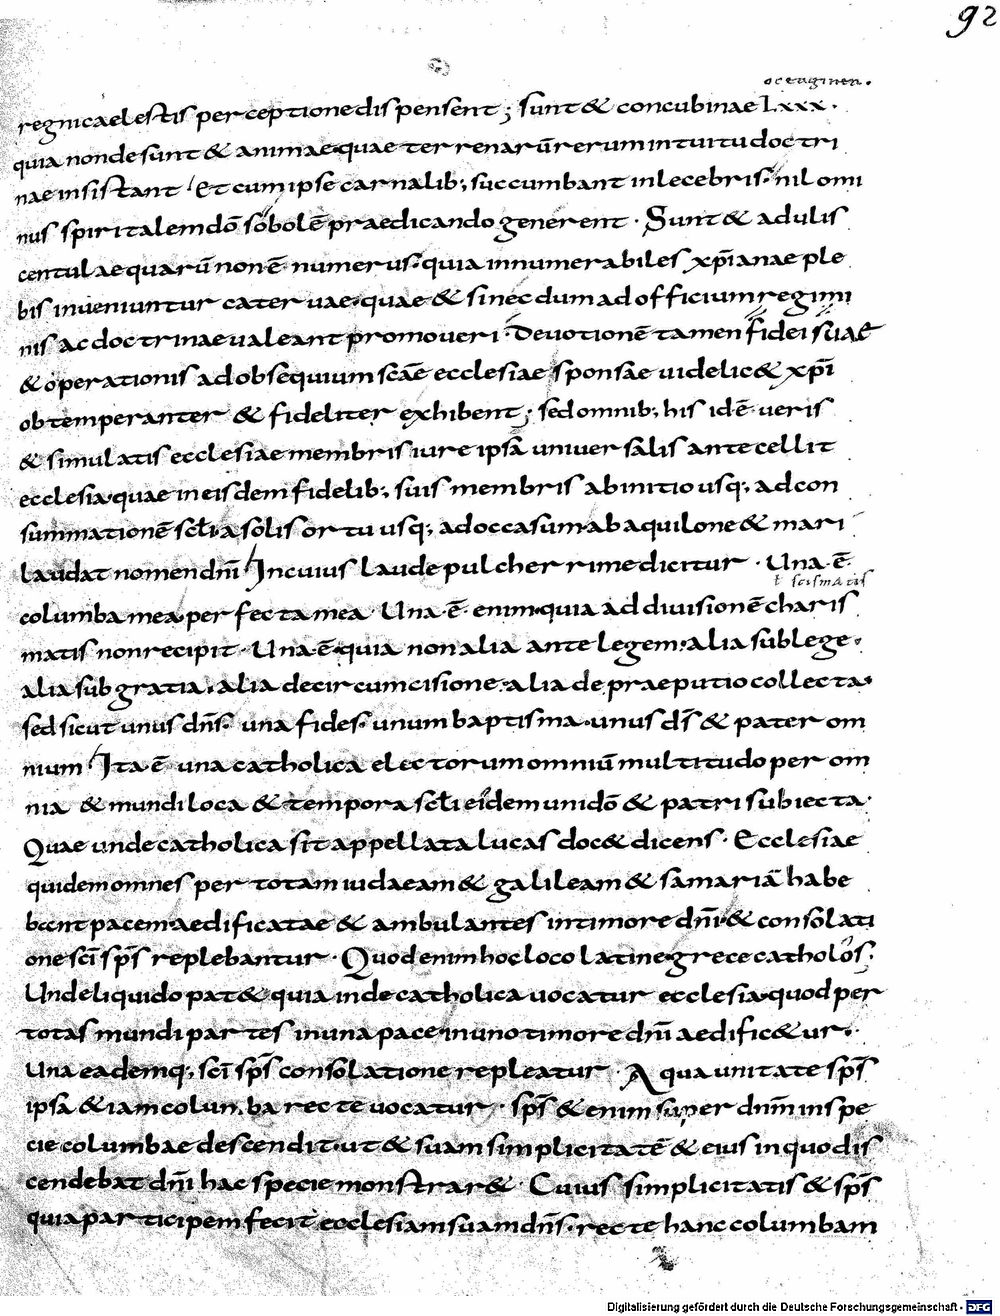 92
octuginta.
regni caelestis perceptione dispensent; sunt & concubinae Lxxx.
quia non desunt & animae quae terrenarū rerum intuitu doctri
nae insistant. Et cum ipse carnalib; succumbant inlecebris. nil omi
nus spiritalem dō sobolē praedicando generent. Sunt & adulis
centulae quarū non ē numerus. quia innumerabiles xp̄ianae ple
bis inveniuntur catervae. quae & si necdum ad officium regimi
nis ac doctrinae valeant promoveri. Devotionē tamen fidei suae
& operationis ad obsequium scāe ecclesiae sponsae videlic& xp̄i
obtemperanter & fideliter exhibent; sed omnib; his id ē veris
& simulatis ecclesiae membris iure ipsa universalis antecellit
ecclesia. quae in eisdem fidelib; suis membris ab initio usq; ad con
summationē scl̄i a solis ortu usq; ad occasum. ab aquilone & mari
laudat nomen dn̄i. In cuius laude pulcherrime dicitur. Una ē
ł scismatis
columba mea perfecta mea. Una ē enim. quia ad divisionē charis
matis non recipit. Una ē quia non alia ante legem. alia sub lege.
alia sub gratia. alia de circumcisione. alia de praeputio collecta.
sed sicut unus dn̄s. una fides. unum baptisma. unus d̄s & pater om
nium. Ita ē una catholica electorum omniū multitudo per om
nia & mundi loca & tempora scl̄i eidem uni dō & patri subiecta.
Quae unde catholica sit appellata lucas doc& dicens. Ecclesiae
quidem omnes per totam iudaeam & galileam & samariā habe
bant pacem aedificatae & ambulantes in timore dn̄i. & consolati
one sc̄i sp̄s replebantur. Quod enim hoc loco latine. grece catholos.
Unde liquido pat& quia inde catholica vocatur ecclesia. quod per
totas mundi partes in una pace. in uno timore dn̄i aedific&ur.
Una eademq; sc̄i sp̄s consolatione repleatur. A qua unitate sp̄s
ipsa &iam columba recte vocatur. sp̄s &enim super dn̄m in spe
cie columbae descendit. ut & suam simplicitatē & eius in quo dis
cendebat dn̄i hac specie monstrar&. Cuius simplicitatis & sp̄s
quia participem fecit ecclesiam suam dn̄s. recte hanc columbam
Digitalisierung gefördert durch die Deutsche Forschungsgemeinschaft - DFG